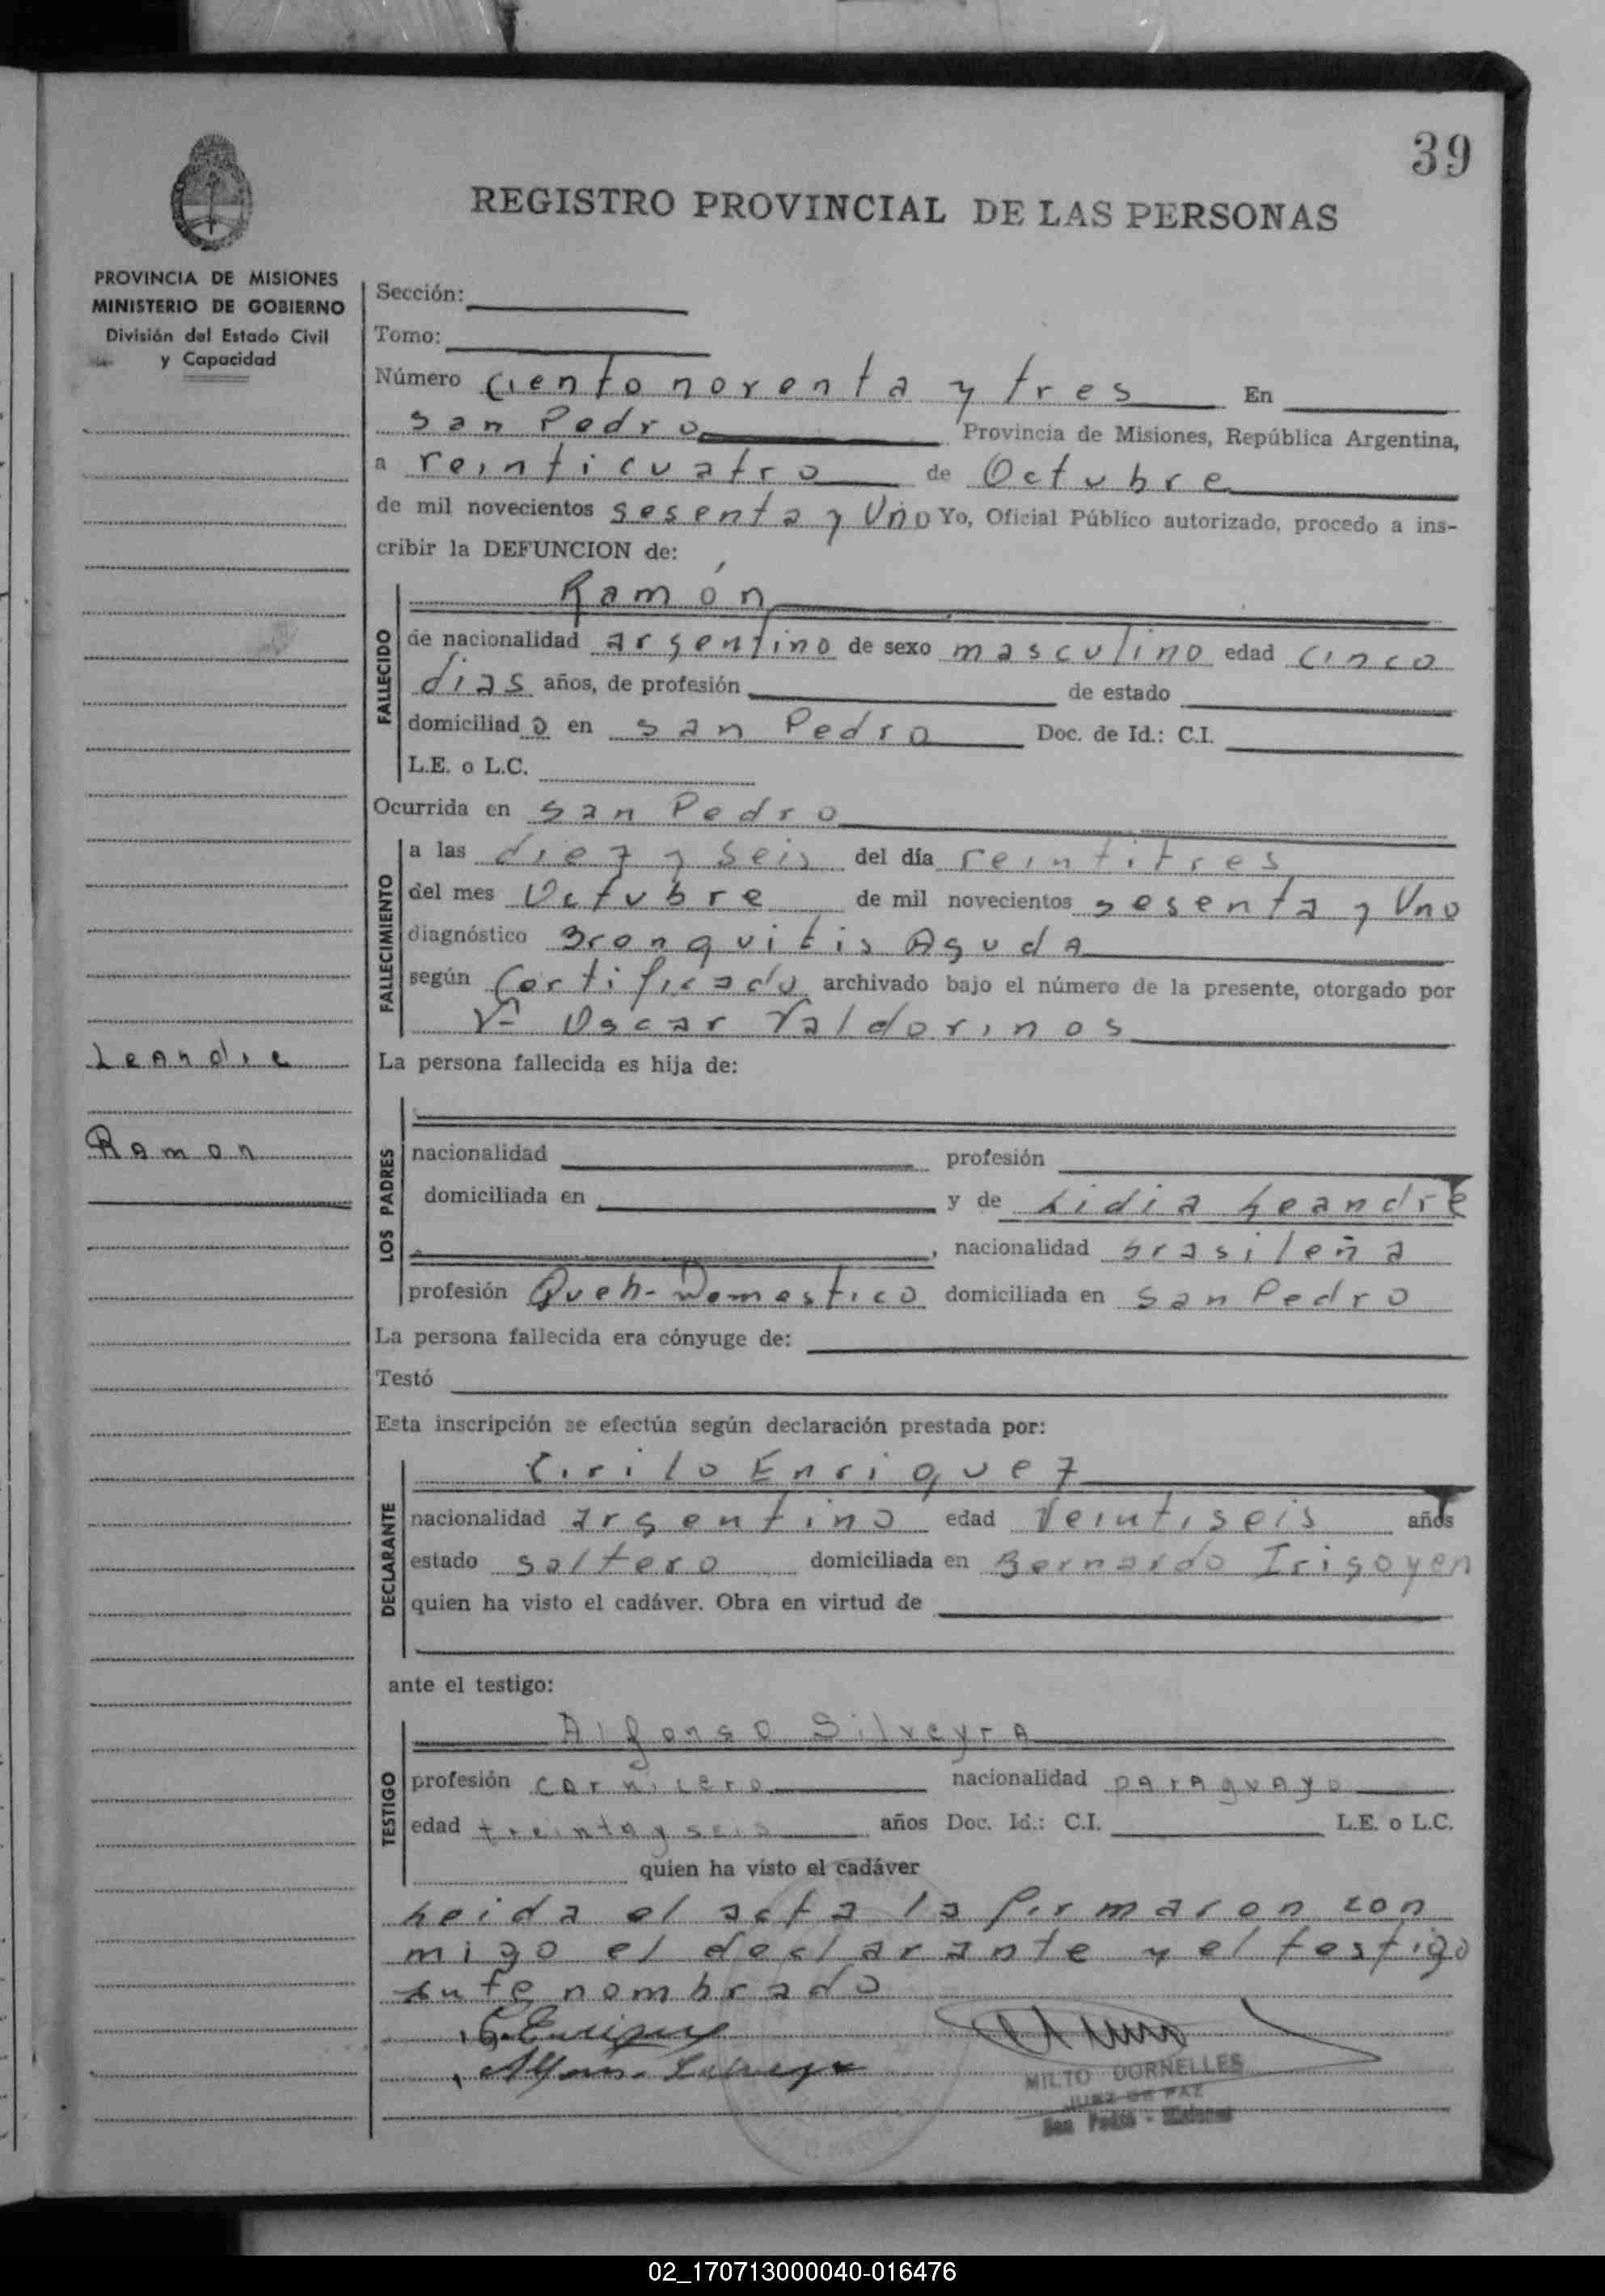 39
REGISTRO PROVINCIAL DE LAS PERSONAS
PROVINCIA DE MISIONES
MINISTERIO DE GOBIERNO
División del Estado Civil
y Capacidad
Leandre
Ramon
Sección:
Tomo:
Número ciento noventa y tres En
San Pedro Provincia de Misiones, República Argentina,
a veinticuatro de Octubre
de mil novecientos sesenta y Uno Yo, Oficial Público autorizado, procedo a ins-
cribir la DEFUNCION de:
Ramón
FALLECIDO
de nacionalidad argentino de sexo masculino edad cinco
dias años, de profesión de estado
domiciliad o en San Pedro Doc. de Id.: C.I.
L.E. o L.C.
Ocurrida en San Pedro
FALLECIMIENTO
a las diez y seis del día veintitres
del mes Octubre de mil novecientos sesenta y Uno
diagnóstico Bronquitis Aguda
según Certificado archivado bajo el número de la presente, otorgado por
Oscar Valdovinos
La persona fallecida es hija de:
LOS PADRES
nacionalidad profesión
domiciliada en y de Lidia Leandre
, nacionalidad brasileña
profesión Queh-Domestico domiciliada en San Pedro
La persona fallecida era cónyuge de:
Testó
Esta inscripción se efectúa según declaración prestada por:
Cirilo Enriquez
DECLARANTE
nacionalidad argentino edad Veintiseis años
estado soltero domiciliada en Bernardo Irigoyen
quien ha visto el cadáver. Obra en virtud de
ante el testigo:
Alfonso Silveyra
TESTIGO
profesión carnicero nacionalidad paraguayo
edad treinta y seis años Doc. Id.: C.I. L.E. o L.C.
quien ha visto el cadáver
Leida el acta la firmaron con
migo el declarante y el testigo
ante nombrado
MILTO DORNELLES
JUEZ DE PAZ
San Pedro - Misiones
02_170713000040-016476